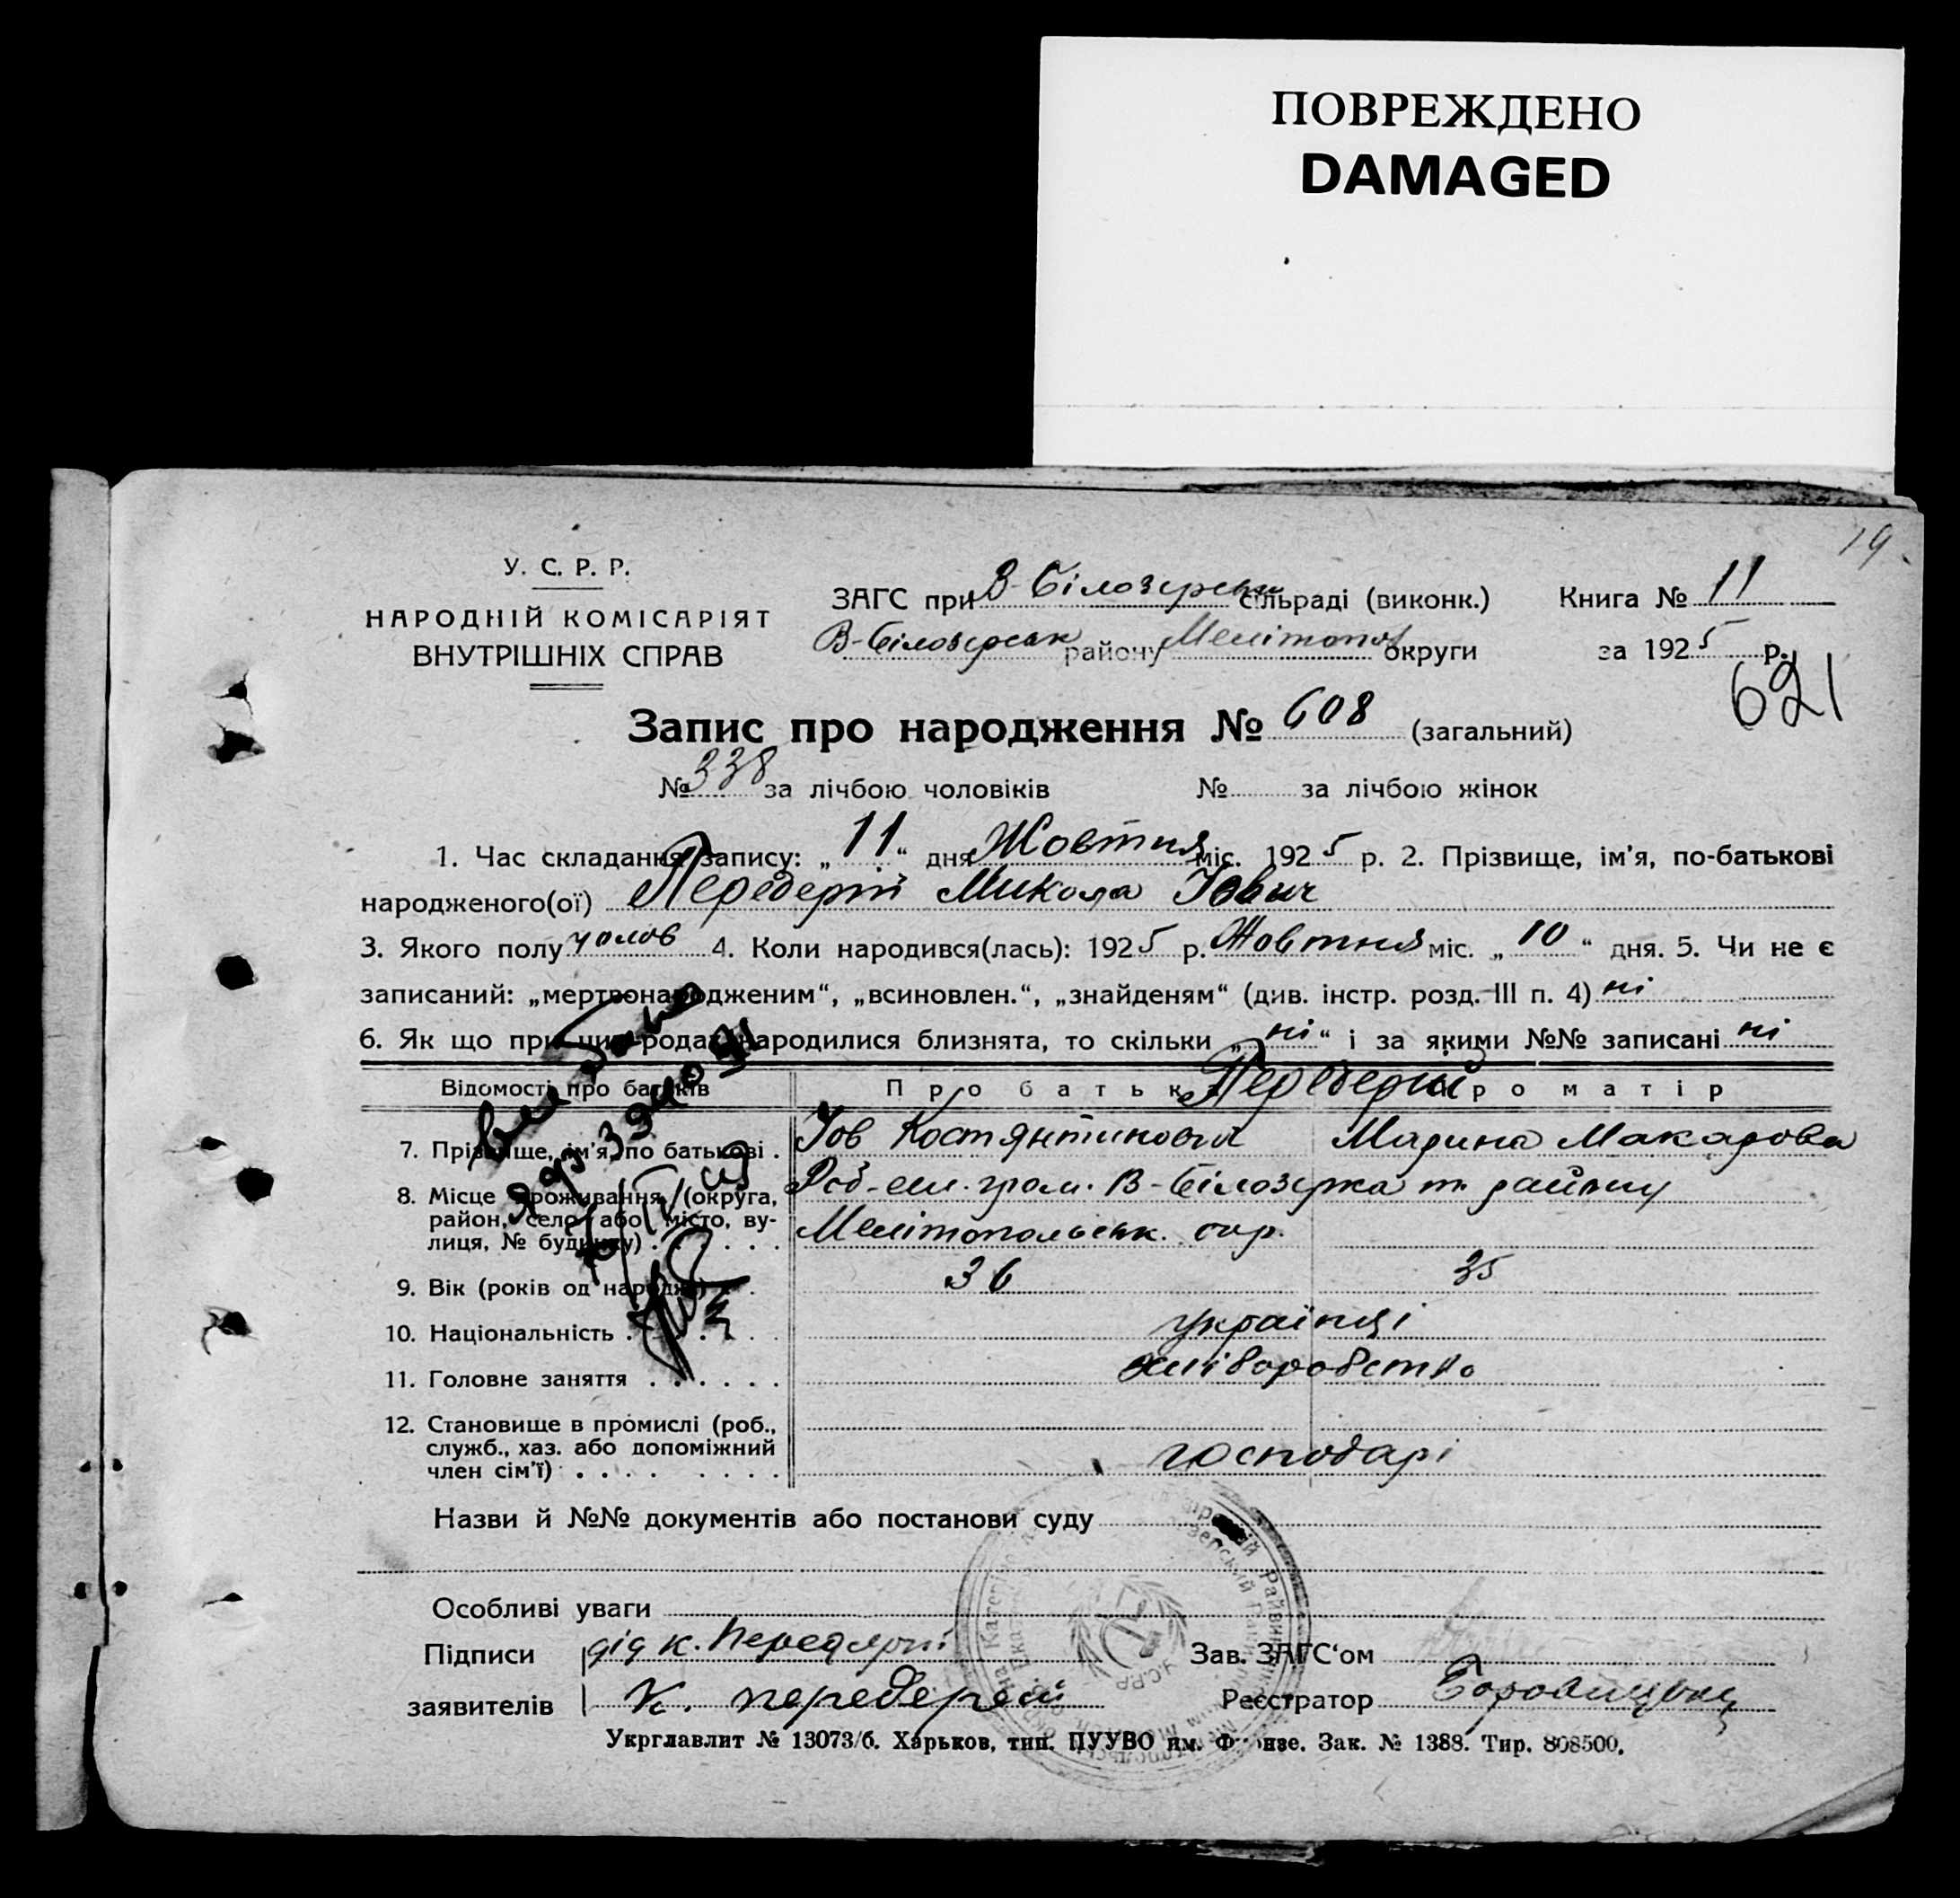 ПОВРЕЖДЕНО
DAMAGED
19
У. С. Р. Р.
НАРОДНІЙ КОМІСАРІЯТ
ВНУТРІШНІХ СПРАВ
ЗАГС при В-Білозерськ сільраді (виконк.) Книга № 11
В-Білозерськ району Мелітопол округи за 1925 р.
621
Запис про народження № 608 (загальний)
№ 338 за лічбою чоловіків № за лічбою жінок
1. Час складання запису: „11“ дня Жовтня міс. 1925 р. 2. Прізвище, ім'я, по-батькові
народженого(ої) Передерій Микола Іович
3. Якого полу чолов 4. Коли народився(лась): 1925 р. Жовтня міс. „10“ дня. 5. Чи не є
записаний: „мертвонародженим“, „всиновлен.“, „знайденям“ (див. інстр. розд. III п. 4) ні
6. Як що при цих родах народилися близнята, то скільки „ні“ і за якими №№ записані ні
Відомості про батьків Про батька Передерій Про матір
7. Прізвище, ім'я, по батькові . Іов Костянтинович Марина Макарова
8. Місце проживання (округа, район, село або місто, вулиця, № будинку) . . . . В-Білозерка т. району
Мелітопольськ. окр.
9. Вік (років од народж.) . . 36 35
10. Національність . . . . . українці
11. Головне заняття . . . . . . хліборобство
12. Становище в промислі (роб.,
служб., хаз. або допоміжний
член сім'ї) . . . . . . . . господарі
Назви й №№ документів або постанови суду
Особливі уваги
Підписи дід к. Передерій Зав. ЗАГС‘ом
заявителів К. передерей Реєстратор
Укрглавлит № 13073/б. Харьков, тип. ПУУВО им. Фрунзе. Зак. № 1388. Тир. 808500.